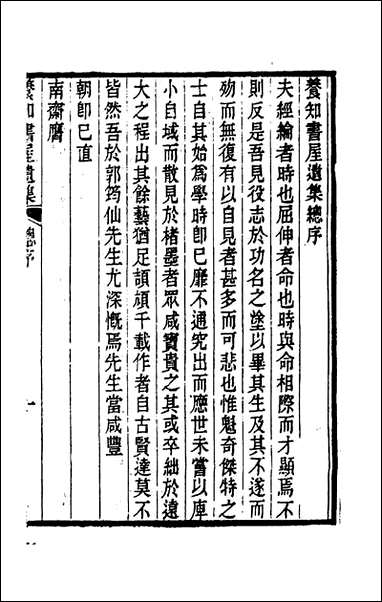 養知書屋遺集總序
夫經綸者時也屈伸者命也時與命相際而才顯焉不
則反是吾見役志於功名之塗以畢其生及其不遂而
歿而無復有以自見者甚多而可悲也惟魁奇傑特之
士自其始為學時卽已靡不通究出而應世未嘗以庫
小自域而散見於楮墨者眾咸寶貴之其或卒絀於遠
大之程出其餘藝猶足頡頏千載作者自古賢達莫不
皆然吾於郭筠仙先生尤深慨焉先生當咸豐
朝卽已直
南齋膺
養知書屋遺集
總序
一